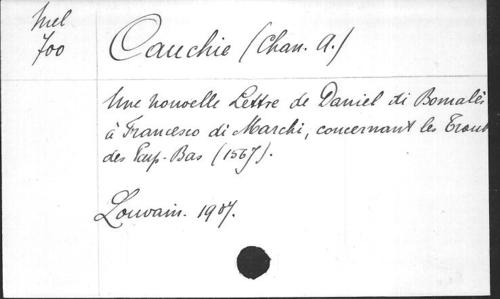 Mel
700
Cauchie (Chan. A.)
Une nouvelle Lettre de Daniel di Bomalès
à Francesco di Marchi, concernant les Troub
des Pays-Bas (1567).
Louvain. 1907.